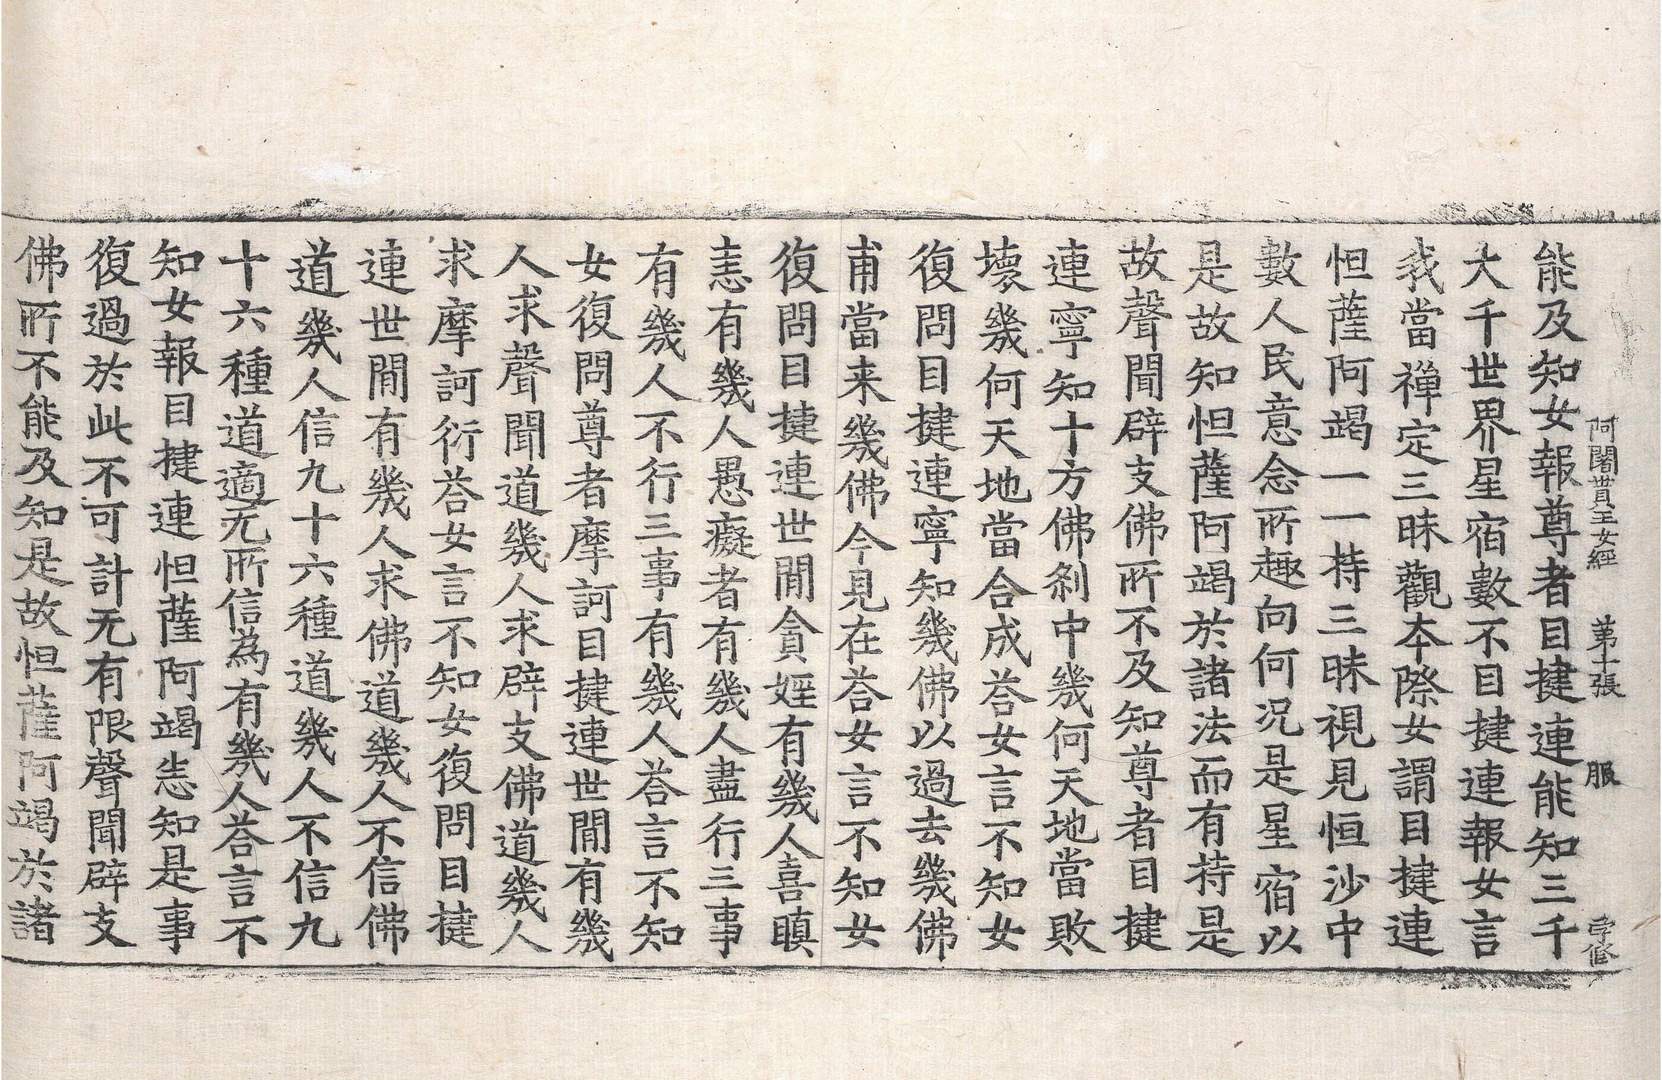 阿闍貰王女經　第十張　服
能及知女報尊者目揵連能知三千
大千世界星宿數不目揵連報女言
我當禪定三昧觀本際女謂目揵連
怛薩阿竭一一持三昧視見恒沙中
數人民意念所趣向何況是星宿以
是故知怛薩阿竭於諸法而有持是
故聲聞辟支佛所不及知尊者目揵
連寧知十方佛剎中幾何天地當敗
壞幾何天地當合成荅女言不知女
復問目揵連寧知幾佛以過去幾佛
甫當来幾佛今見在荅女言不知女
復問目揵連世間貪婬有幾人喜瞋
恚有幾人愚癡者有幾人盡行三事
有幾人不行三事有幾人荅言不知
女復問尊者摩訶目揵連世間有幾
人求聲聞道幾人求辟支佛道幾人
求摩訶衍荅女言不知女復問目揵
連世間有幾人求佛道幾人不信佛
道幾人信九十六種道幾人不信九
十六種道適无所信為有幾人荅言不
知女報目揵連怛薩阿竭悉知是事
復過於此不可計无有限聲聞辟支
佛所不能及知是故怛薩阿竭於諸